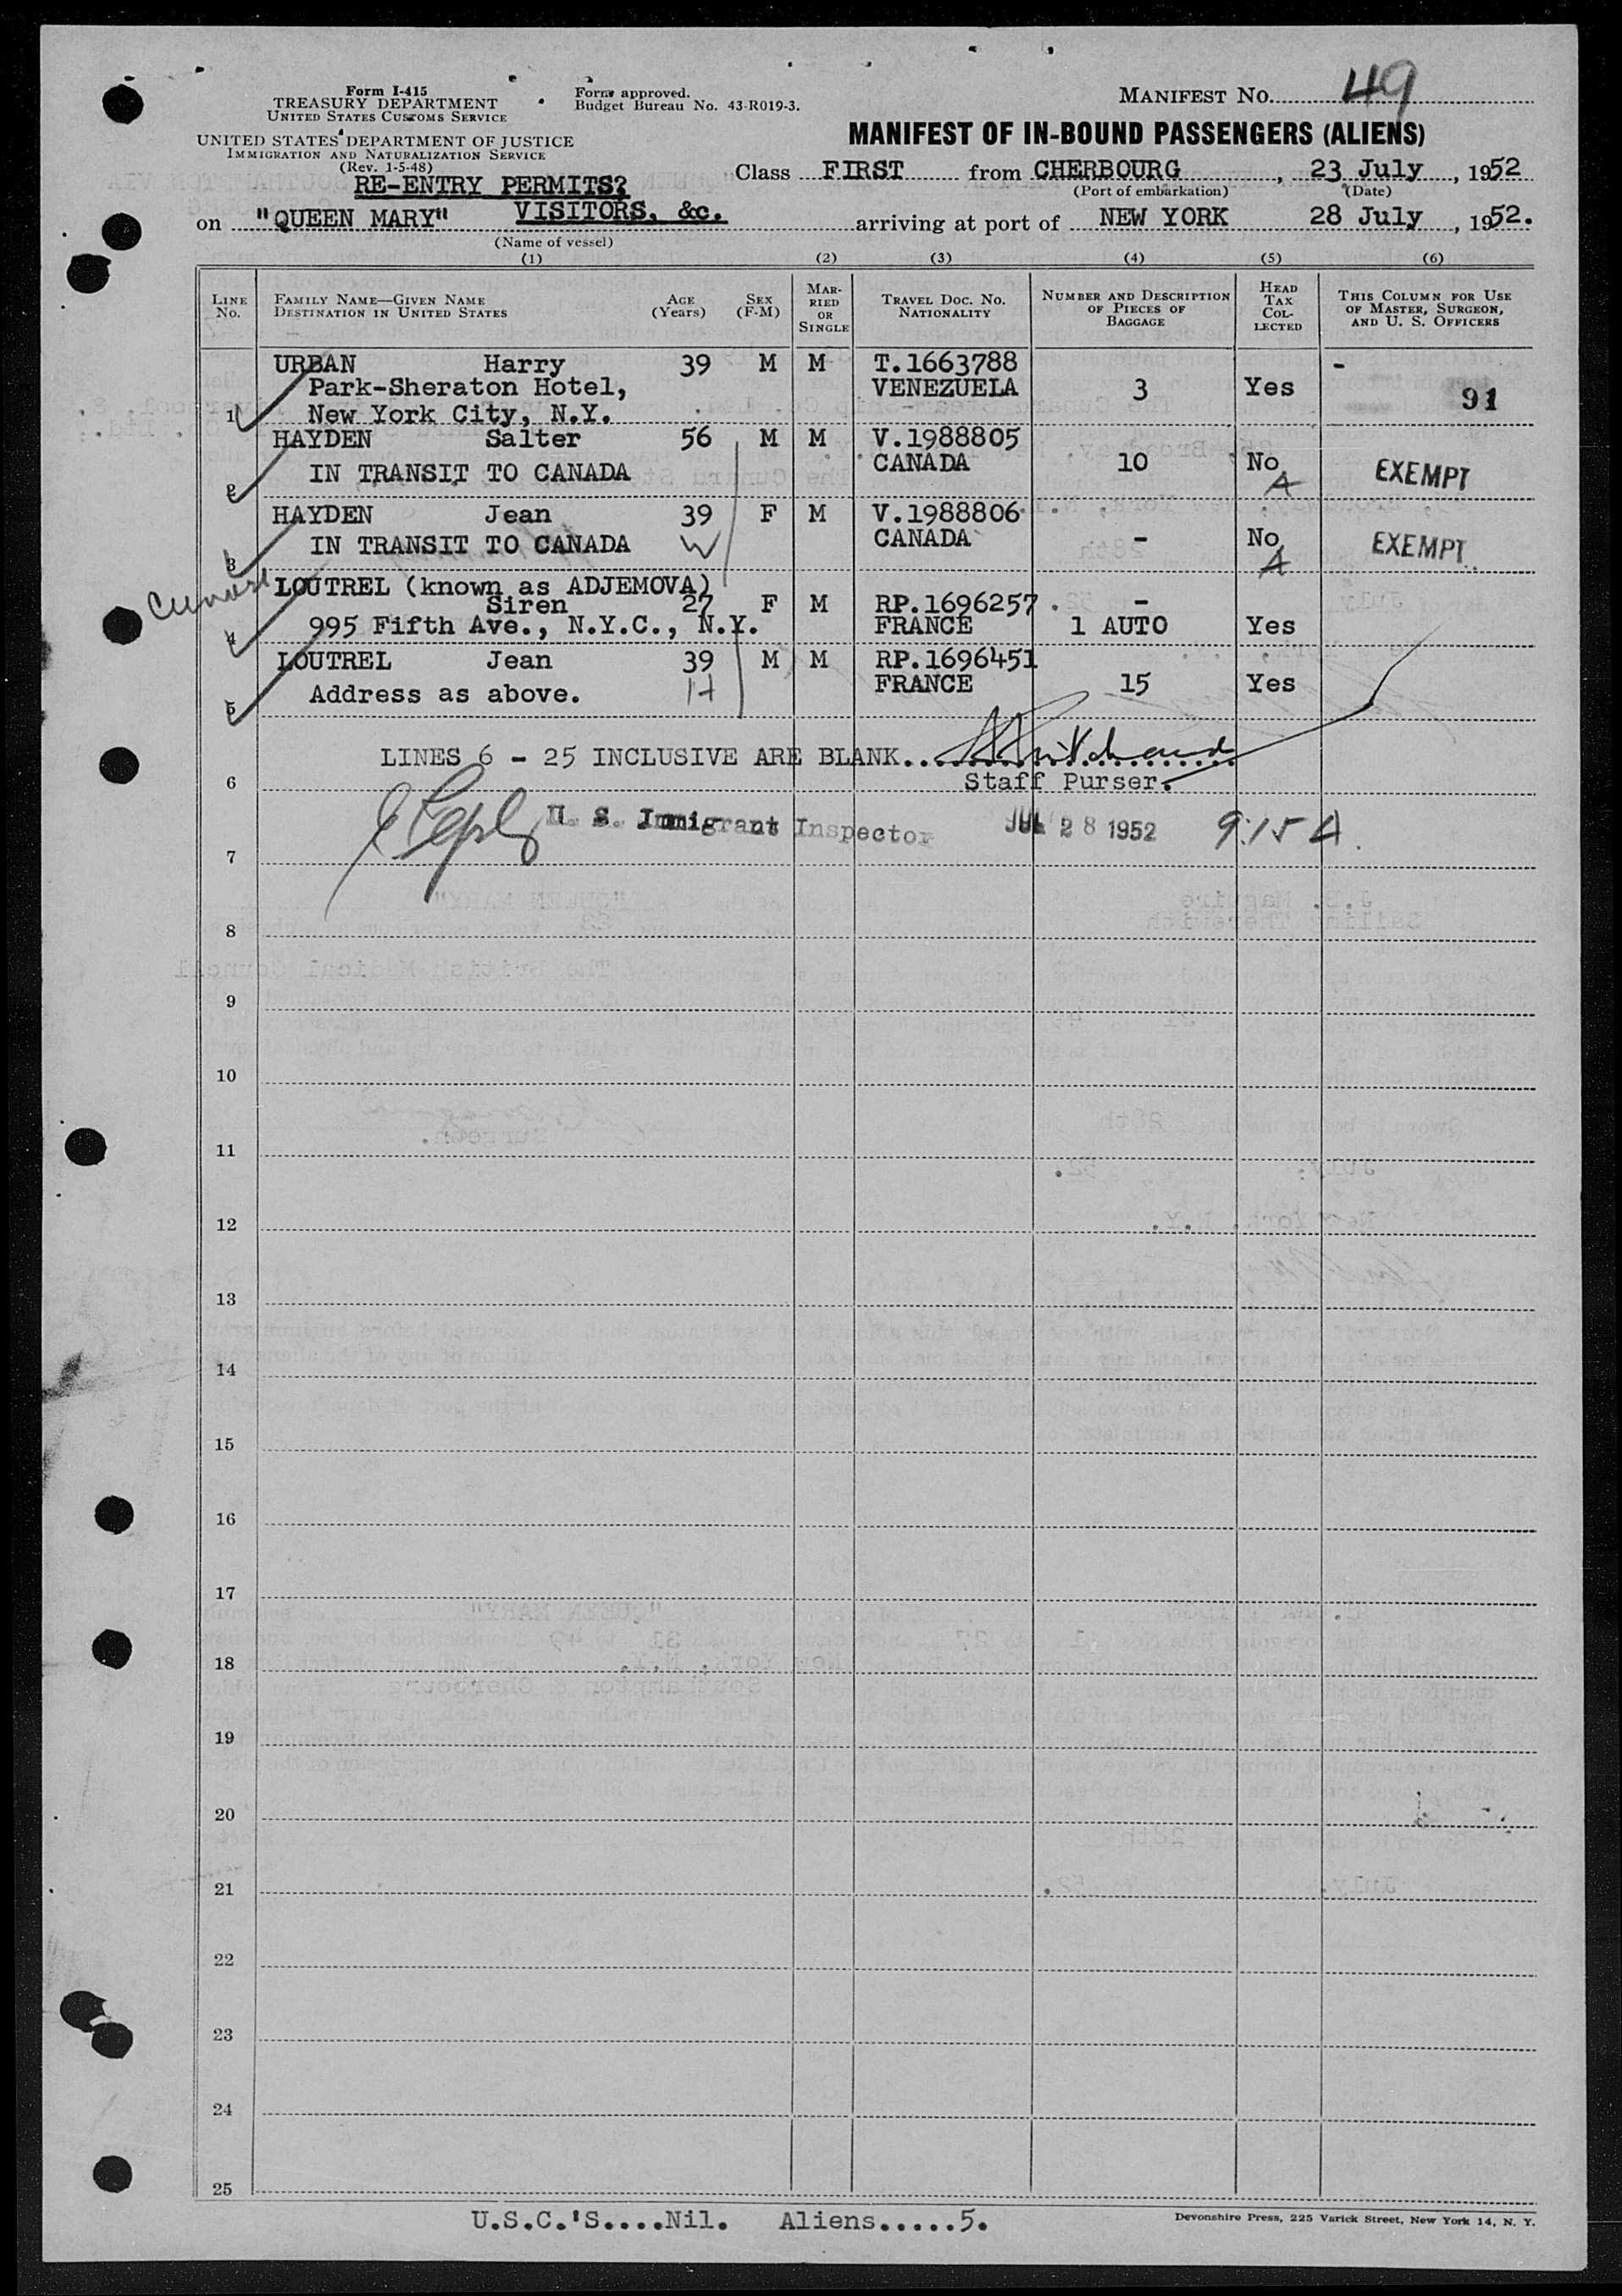 Form I-415
TREASURY DEPARTMENT
UNITED STATES CUSTOMS SERVICE
UNITED STATES DEPARTMENT OF JUSTICE
IMMIGRATION AND NATURALIZATION SERVICE
(Rev. 1-5-48)
Form approved.
Budget Bureau No. 43-R019-3.
MANIFEST NO. 49
MANIFEST OF IN-BOUND PASSENGERS (ALIENS)
RE-ENTRY PERMITS?
VISITORS, &c.
Class FIRST from CHERBOURG, 23 July, 1952
(Port of embarkation) (Date)
on "QUEEN MARY" arriving at port of NEW YORK 28 July, 1952.
(Name of vessel)
(1) (2) (3) (4) (5) (6)
LINE No.
FAMILY NAME—GIVEN NAME
DESTINATION IN UNITED STATES
AGE (Years)
SEX (F-M)
MARRIED OR SINGLE
TRAVEL DOC. NO. NATIONALITY
NUMBER AND DESCRIPTION OF PIECES OF BAGGAGE
HEAD TAX COLLECTED
THIS COLUMN FOR USE OF MASTER, SURGEON, AND U. S. OFFICERS
URBAN Harry 39 M M T.1663788 -
Park-Sheraton Hotel, VENEZUELA 3 Yes 91
1 New York City, N.Y.
HAYDEN Salter 56 M M V.1988805
IN TRANSIT TO CANADA CANADA 10 No EXEMPT
2 A
HAYDEN Jean 39 F M V.1988806
IN TRANSIT TO CANADA W CANADA - No EXEMPT
3 A
Cunard
LOUTREL (known as ADJEMOVA)
Siren 27 F M RP.1696257 -
995 Fifth Ave., N.Y.C., N.Y. FRANCE 1 AUTO Yes
4
LOUTREL Jean 39 M M RP.1696451
Address as above. H FRANCE 15 Yes
5
LINES 6 - 25 INCLUSIVE ARE BLANK
Staff Purser.
6
U. S. Immigrant Inspector JUL 28 1952 9:15 A
7
8
9
10
11
12
13
14
15
16
17
18
19
20
21
22
23
24
25
U.S.C.'S....Nil. Aliens.....5.
Devonshire Press, 225 Varick Street, New York 14, N. Y.